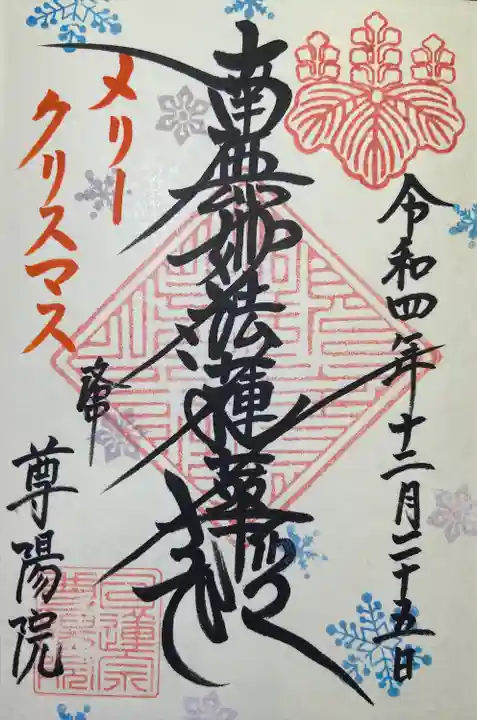 令和四年十二月二十五日
南無妙法蓮華経
メリー
クリスマス
尊陽院